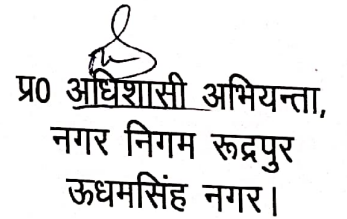 प्र0 अधिशासी अभियन्ता,
नगर निगम रूद्रपुर
ऊधमसिंह नगर।